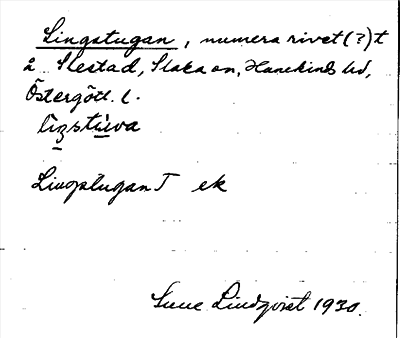 Lingstugan, numera rivet (?) t
å Slestad, Slaka sn, Hanekinds hd,
Östergötl. l.
līŋstùva
Lingstugan T ek
Sune Lindqvist 1930.